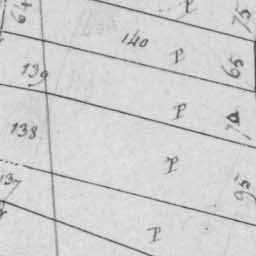 64 P 75
140 P 65
139 P
138 P 95
137 P